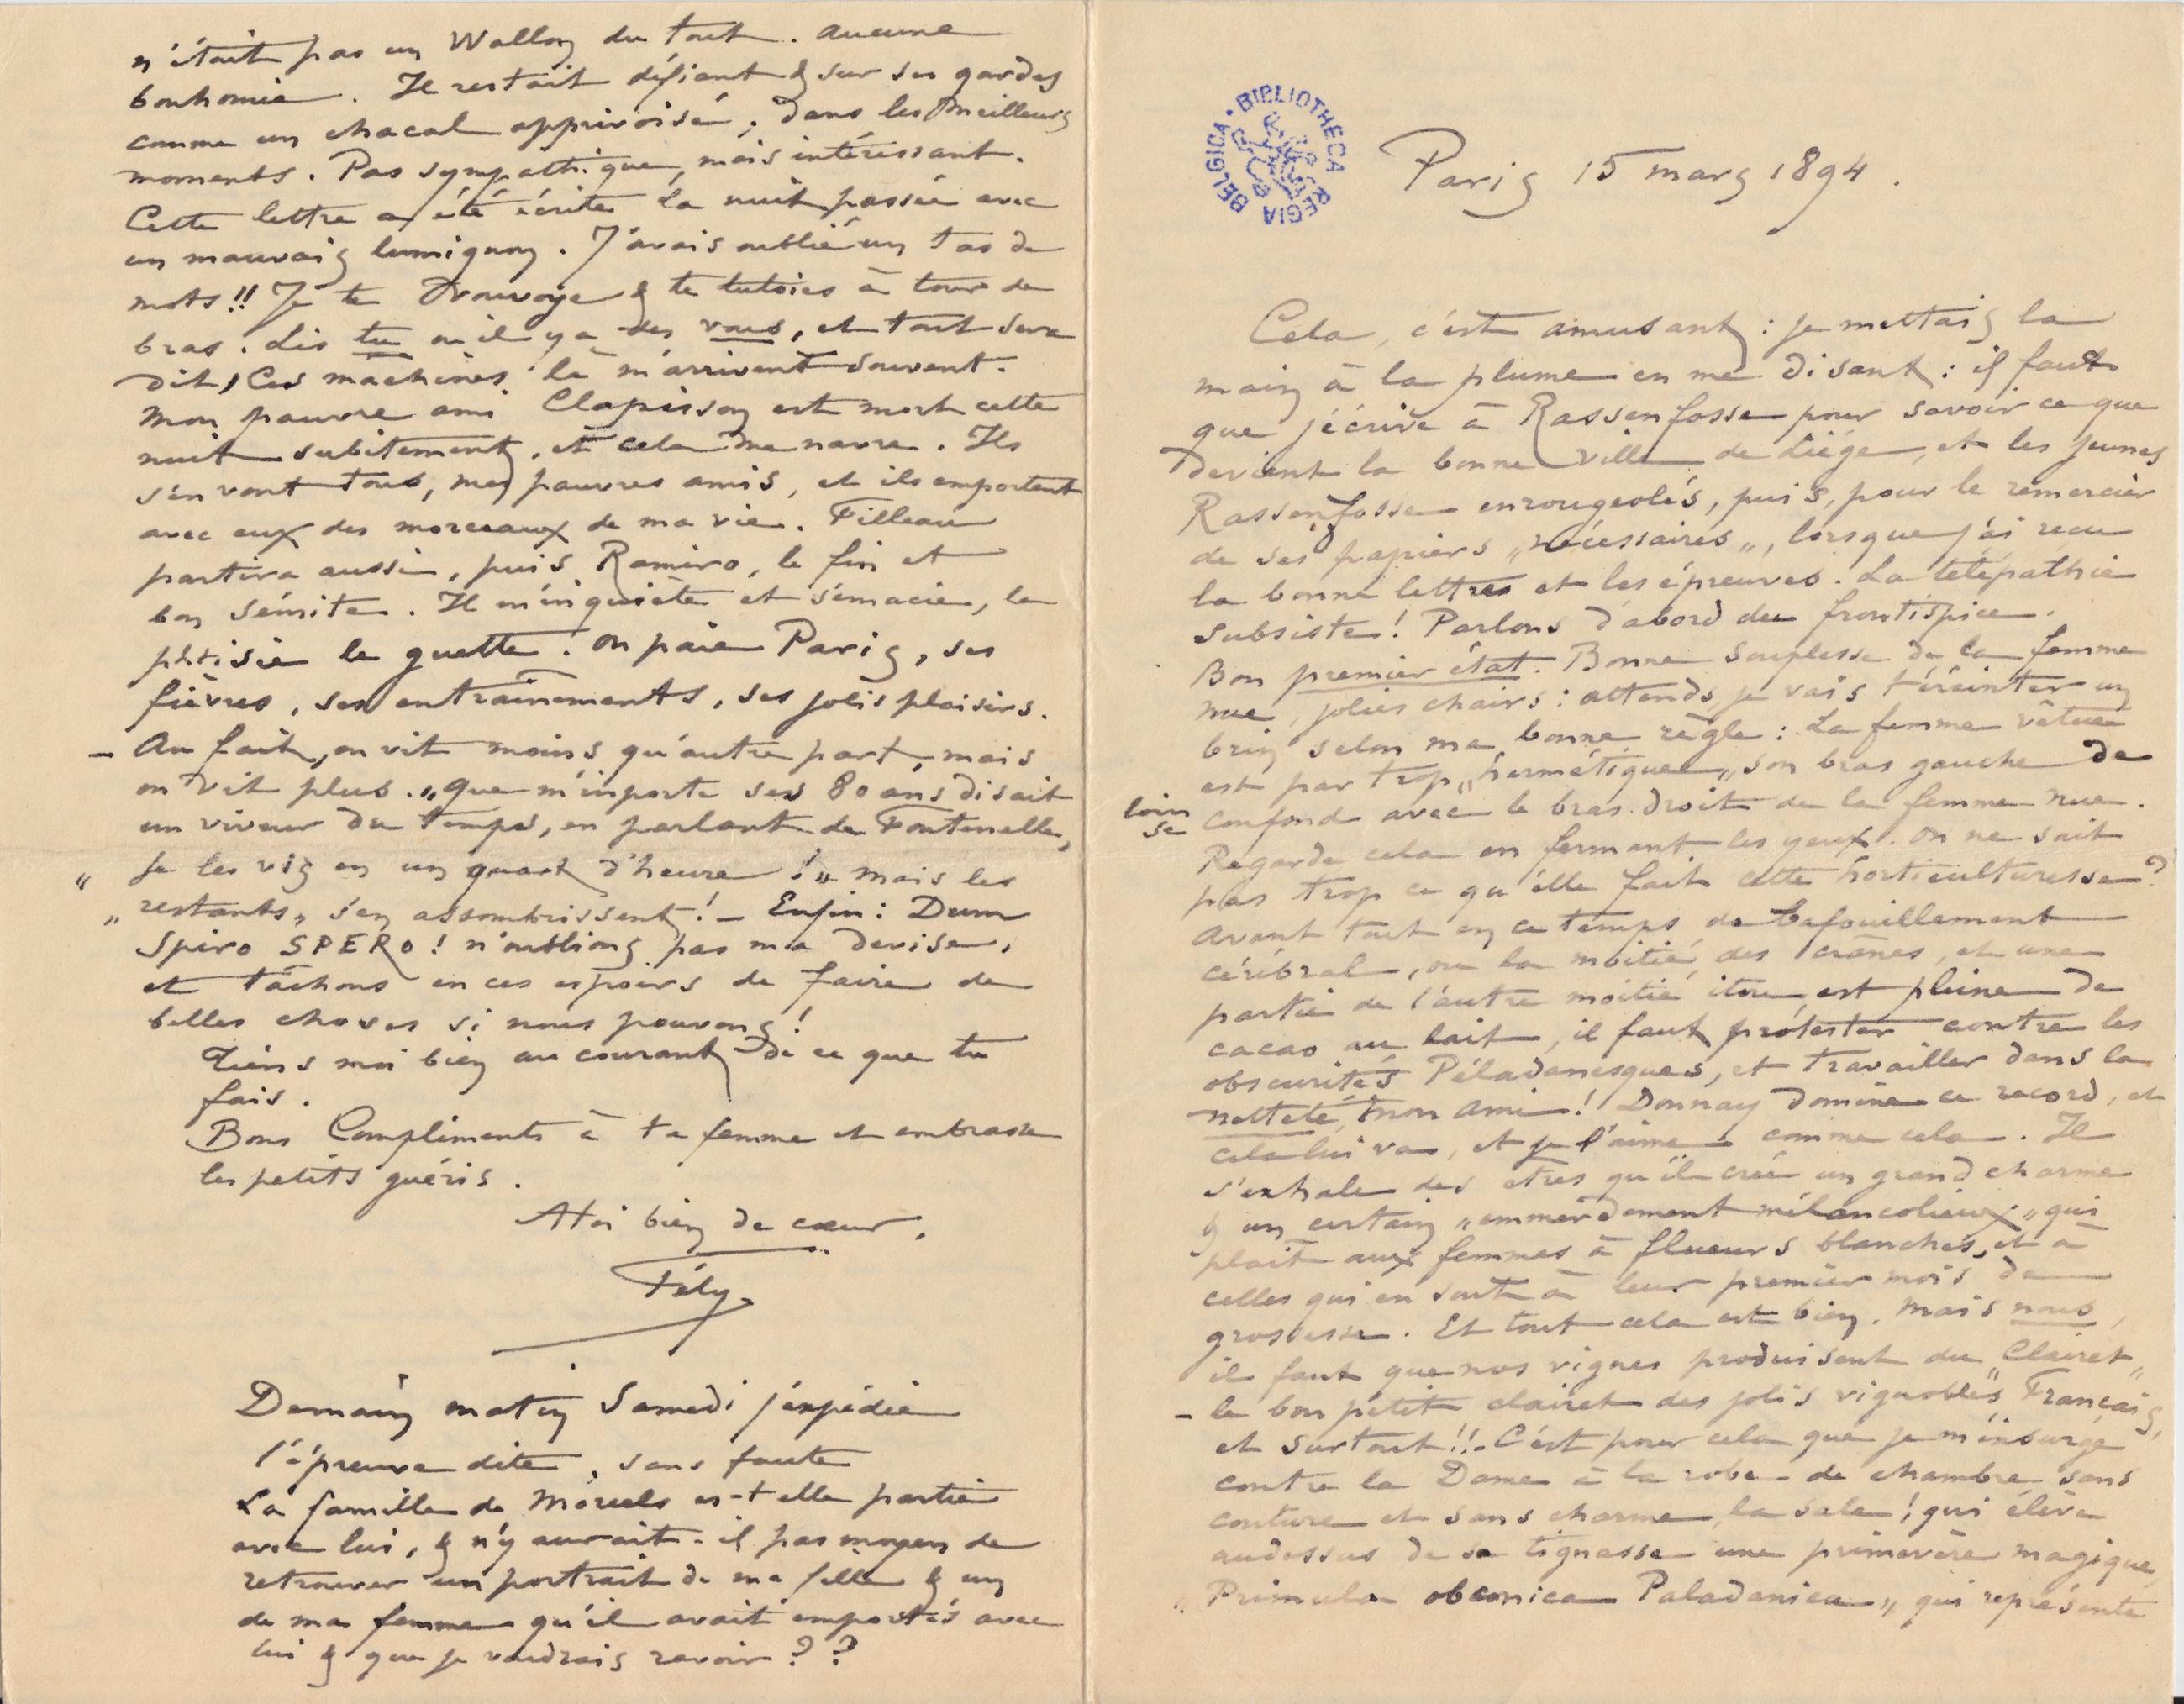 n'était pas un Wallon du tout. Aucune
bonhomie. Il restait défiant & sur ses gardes
comme un chacal apprivoisé, dans les meilleurs
moments. Pas sympathique, mais intéressant.
Cette lettre a été écrite la nuit passée avec
un mauvais lumignon. J'avais oublié un tas de
mots!! Je te & te tutoies à tour de
bras. Lis tu où il y a des vous, et tout sera
dit, Ces machines là m'arrivent souvent.
Mon pauvre ami Clapisson est mort cette
nuit subitement, et cela me navre. Ils
s'en vont tous, mes pauvres amis, et ils emportent
avec eux des morceaux de ma vie. Filleau
partira aussi, puis Ramiro, le fin et
bon sémite. Il m'inquiète et s'émacie, la
phtisie le guette! On paie Paris, ses
fièvres, ses entraînements, ses jolis plaisirs.
– Au fait, on vit moins qu'autre part, mais
on vit plus. „Que m'importe ses 80 ans disait
un viveur du temps, en parlant de Fontenelle,
„ je les vis en un quart d'heure!„ mais les
„restants„ s'en assombrissent! – Enfin: Dum
Spiro SPERO! n'oublions pas ma devise,
et tâchons en ces espoirs de faire de
belles choses si nous pouvons!
Tiens moi bien au courant de ce que tu
fais.
Bons Compliments à ta femme et embrasse
les petits guéris.
A toi bien de cœur,
Fély
Demain matin Samedi j'expédie
l'épreuve dite, sans faute
La famille de est-elle partie
avec lui, & n'y aurait-il pas moyen de
retrouver un portrait de ma fille & un
de ma femme qu'il avait emportés avec
lui & que je voudrais ravoir??
BIBLIOTHECA REGIA BELGICA
Paris 15 mars 1894.
Cela, c'est amusant: je mettais la
main à la plume en me disant: il faut
que j'écrive à Rassenfosse pour savoir ce que
devient la bonne ville de Liége, et les jeunes
Rassenfosse enrougeolés, puis, pour le remercier
de ses papiers „nécessaires„, lorsque j'ai recu
la bonne lettre et les épreuves. La télépathie
subsiste! Parlons d'abord du frontispice.
Bon premier état. Bonne souplesse de la femme
nue, jolies chairs: attends, je vais t'éreinter un
brin selon ma bonne règle: La femme vêtue
est par trop „hermétique„ son bras gauche de
loin se confond avec le bras droit de la femme nue.
Regarde cela en fermant les yeux. On ne sait
pas trop ce qu'elle fait cette horticulturesse?
Avant tout en ce temps de bafouillement
cérébral, ou la moitié des crânes, et une
partie de l'autre moitié itou est pleine de
cacao au lait, il faut protester contre les
obscurités Péladanesques, et travailler dans la
netteté, mon ami! Donnay domine ce record, et
cela lui va, et je l'aime comme cela. Il
s'exhale des etres qu'il crée un grand charme
& un certain „emmerdement mélancolieux„ qui
plait aux femmes à flueurs blanches, et à
celles qui en sont à leur premier mois de
grossesse. Et tout cela est bien. Mais nous,
il faut que nos vignes produisent du „Clairet„
– le bon petit clairet des jolis vignobles Français,
et surtout!!– C'est pour cela que je m'insurge
contre la Dame à la robe de chambre sans
couture et sans charme, la sale! qui élève
audessus de sa tignasse une primevère magique,
„Primula obconica Paladanica„ qui représente